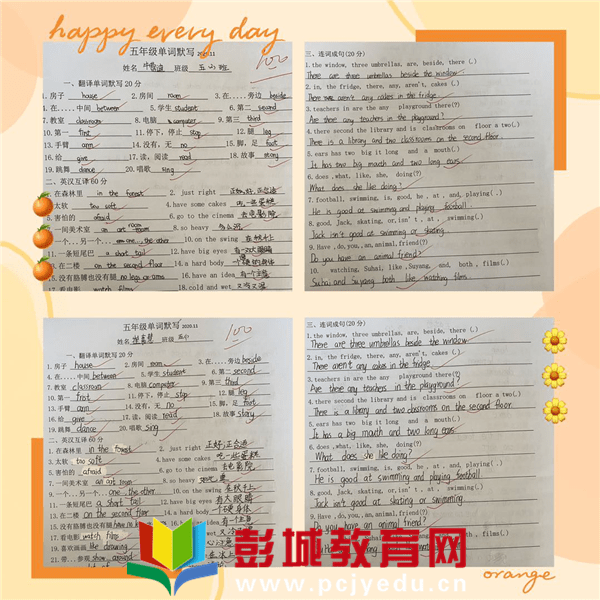 happy every day
五年级单词默写 2020.11
姓名 班级
100
一、翻译单词默写20分
1. 房子 house 2. 房间 room 3. 在.....旁边 beside
4. 在.....中间 between 5. 学生 student 6. 第二 second
7. 教室 classroom 8. 电脑 computer 9. 第三 third
10. 第一 first 11. 停下，停止 stop 12. 腿 leg
13. 手臂 arm 14. 没有，无 no 15. 脚，足 foot
16. 给 give 17. 读，阅读 read 18. 故事 story
19. 跳舞 dance 20. 唱歌 sing
二、英汉互译60分
1. 在森林里 in the forest 2. just right 正好，正合适
3. 太软 too soft 4. have some cakes 吃一些蛋糕
5. 害怕的 afraid 6. go to the cinema 去电影院
7. 一间美术室 an art room 8. so heavy
9. 一个...另一个... one the other 10. on the swing 在秋千上
11. 一条短尾巴 a short tail 12. have big eyes
13. 在二楼 on the second floor 14. a hard body
15. 没有胳膊也没有腿 no legs or arms 16. have an idea 有一个主意
17. 看电影 watch films 18. cold and wet 又冷又湿
三、连词成句(20分)
1. the window, three umbrellas, are, beside, there (.)
There are three umbrellas beside the window.
2. in, the fridge, there, any, aren't, cakes (.)
There aren't any cakes in the fridge.
3. teachers in are the any playground there(?)
Are there any teachers in the playground?
4. there second the library and is classrooms on floor a two(.)
There is a library and two classrooms on the second floor.
5. ears has two big it long and a mouth(.)
It has two big mouth and two long ears.
6. does ,what, like, she, doing(?)
What does she like doing?
7. football, swimming, is, good, he , at , and, playing( .)
He is good at swimming and playing football.
8. good, Jack, skating, or,isn't , at , swimming(.)
Jack isn't good at skating or swimming.
9. Have ,do,you,an,animal,friend(?)
Do you have an animal friend?
10. watching, Suhai, like ,Suyang, and, both , films(.)
Suhai and Suyang both like watching films.
五年级单词默写 2020.11
姓名 班级 五
100
一、翻译单词默写20分
1. 房子 house 2. 房间 room 3. 在.....旁边 beside
4. 在.....中间 between 5. 学生 student 6. 第二 second
7. 教室 classroom 8. 电脑 computer 9. 第三 third
10. 第一 first 11. 停下，停止 stop 12. 腿 leg
13. 手臂 arm 14. 没有，无 no 15. 脚，足 foot
16. 给 give 17. 读，阅读 read 18. 故事 story
19. 跳舞 dance 20. 唱歌 sing
二、英汉互译60分
1. 在森林里 in the forest 2. just right 正好，正合适
3. 太软 too soft 4. have some cakes 吃一些蛋糕
5. 害怕的 afraid 6. go to the cinema 去电影院
7. 一间美术室 an art room 8. so heavy
9. 一个...另一个... one the other 10. on the swing 在秋千上
11. 一条短尾巴 a short tail 12. have big eyes 有大眼睛
13. 在二楼 on the second floor 14. a hard body
15. 没有胳膊也没有腿 idea
17. 看电影 watch films
19. 喜欢画画 like drawing
21. 带...参观 show around
三、连词成句(20分)
1. the window, three umbrellas, are, beside, there (.)
There are three umbrellas beside the window.
2. in, the fridge, there, any, aren't, cakes (.)
There aren't any cakes in the fridge.
3. teachers in are the any playground there(?)
Are there any teachers in the playground?
4. there second the library and is classrooms on floor a two(.)
There is a library and two classrooms on the second floor.
5. ears has two big it long and a mouth(.)
It has a big mouth and two long ears.
6. does ,what, like, she, doing(?)
What does she like doing?
7. football, swimming, is, good, he , at , and, playing( .)
He is good at swimming and playing football.
8. good, Jack, skating, or,isn't , at , swimming(.)
Jack isn't good at skating or swimming.
9. Have ,do,you,an,animal,friend(?)
Do you have an animal friend?
彭城教育网
www.pcjyedu.cn
orange